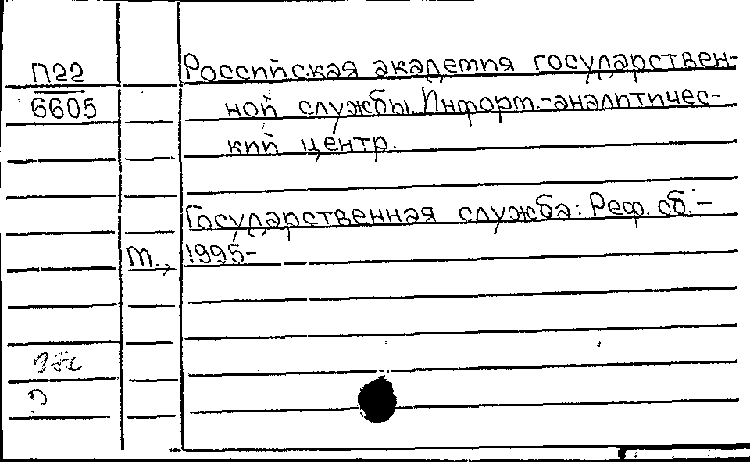 П22
6605
Российская академия государствен-
ной службы. Информ.-аналитичес-
кий центр.
Государственная служба: Реф. сб. -
М., 1995-